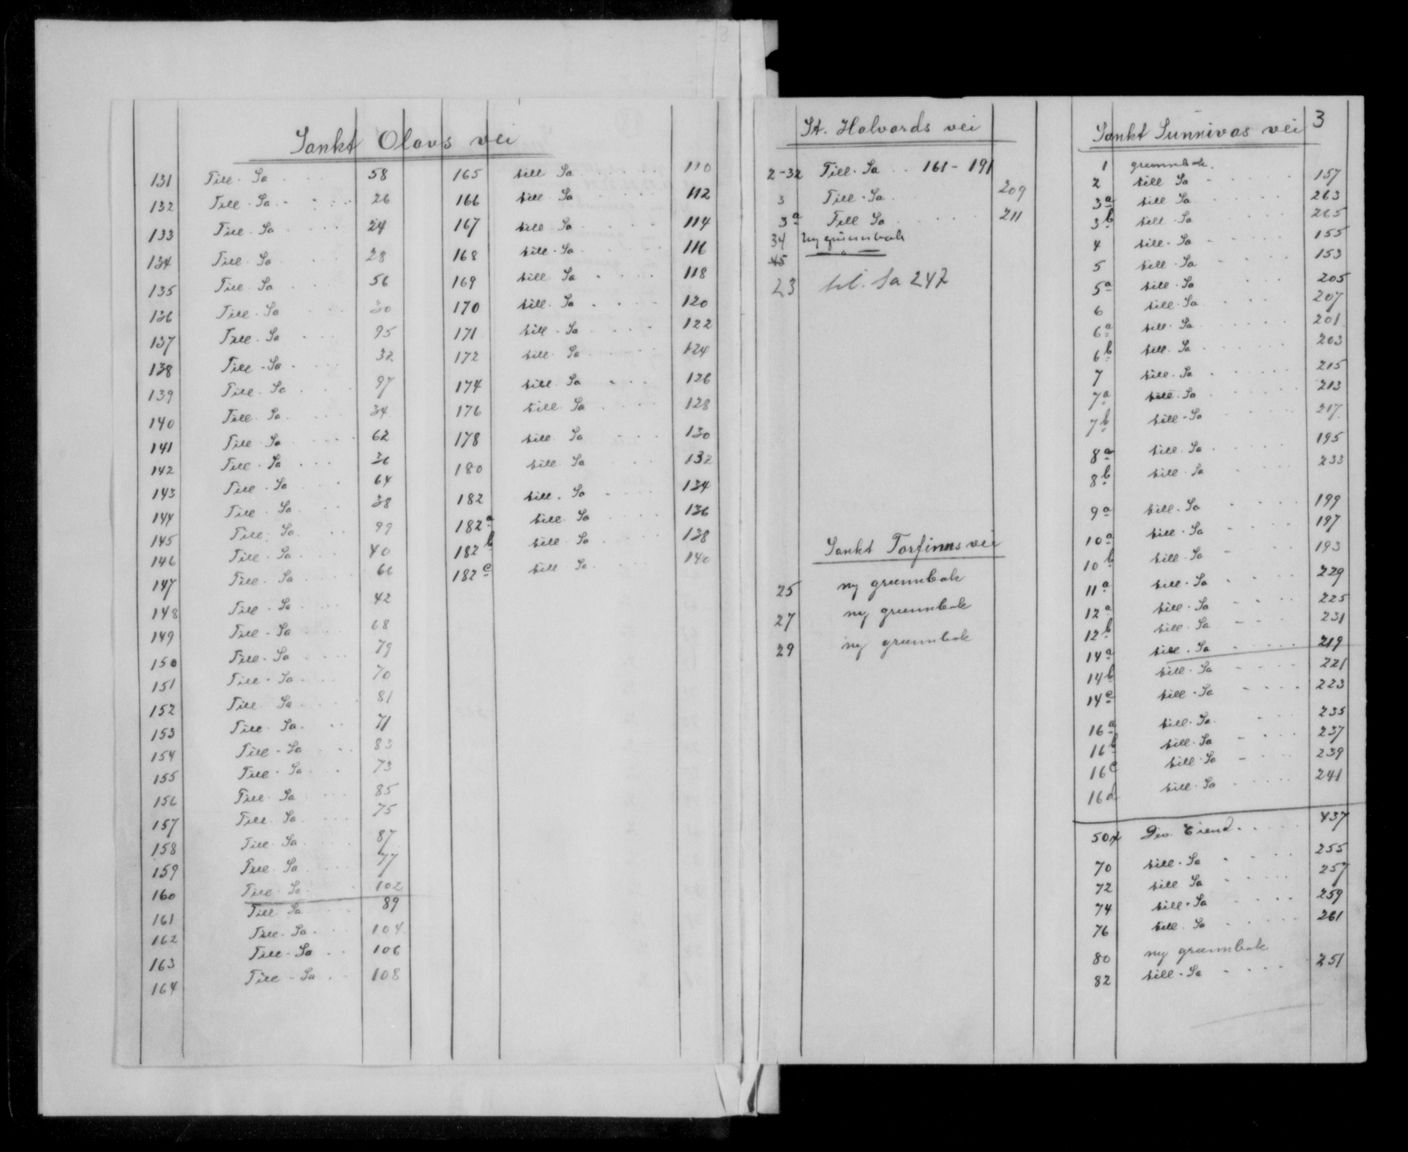 Sankt Olavs vei
131 Till. Sa 58
132 Till. Sa 26
133 Till. Sa 24
134 Till. Sa 28
135 Till. Sa 56
136 Till. Sa 30
137 Till. Sa 95
138 Till. Sa 32
139 Till. Sa 97
140 Till. Sa 34
141 Till. Sa 62
142 Till. Sa 36
143 Till. Sa 64
144 Till. Sa 38
145 Till. Sa 99
146 Till. Sa 40
147 Till. Sa 66
148 Till. Sa 42
149 Till. Sa 68
150 Till. Sa 79
151 Till. Sa 70
152 Till. Sa 81
153 Till. Sa 71
154 Till. Sa 83
155 Till. Sa 73
156 Till. Sa 85
157 Till. Sa 75
158 Till. Sa 87
159 Till. Sa 77
160 Till. Sa 102
161 Till. Sa 89
162 Till. Sa 104
163 Till. Sa 106
164 Till. Sa 108
165 till Sa 110
166 till Sa 112
167 till Sa 114
168 till Sa 116
169 till Sa 118
170 till Sa 120
171 till Sa 122
172 till Sa 124
174 till Sa 126
176 till Sa 128
178 till Sa 130
180 till Sa 132
182 till. Sa 134
182a till Sa 136
182b till Sa 138
182c till Sa 140
St. Halvards vei
2-32 Till. Sa 161-191
3 Till. Sa 209
3a Till Sa 211
34 ny grunnbok
45
23 til. Sa 247
Sankt Torfinns vei
25 ny grunnbok
27 ny grunnbok
29 ny grunnbok
3
Sankt Sunnivas vei
1 grunnbok.
2 till Sa 157
3a till Sa 263
3b till Sa 265
4 till. Sa 155
5 till Sa 153
5a till. Sa 205
6 till. Sa 207
6a till. Sa 201
6b till. Sa 203
7 till. Sa 215
7a till. Sa 213
7b till. Sa 217
8a till. Sa 195
8b till. Sa 233
9a till. Sa 199
10a till. Sa 197
10b till. Sa 193
11a till. Sa 229
12a till. Sa 225
12b till. Sa 231
14a till. Sa 219
14b till. Sa 221
14c till. Sa 223
16a till. Sa 235
16b till. Sa 237
16c till. Sa 239
16d till. Sa 241
50x Div. Eiend. 437
70 till. Sa 255
72 till Sa 257
74 till. Sa 259
76 till. Sa 261
80 ny grunnbok
82 till. Sa 251